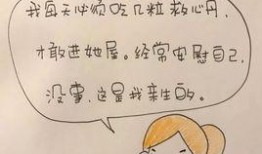 我每天必须吃几粒救心丹，
才敢进她屋。经常安慰自己，
没事，这是我亲生的。